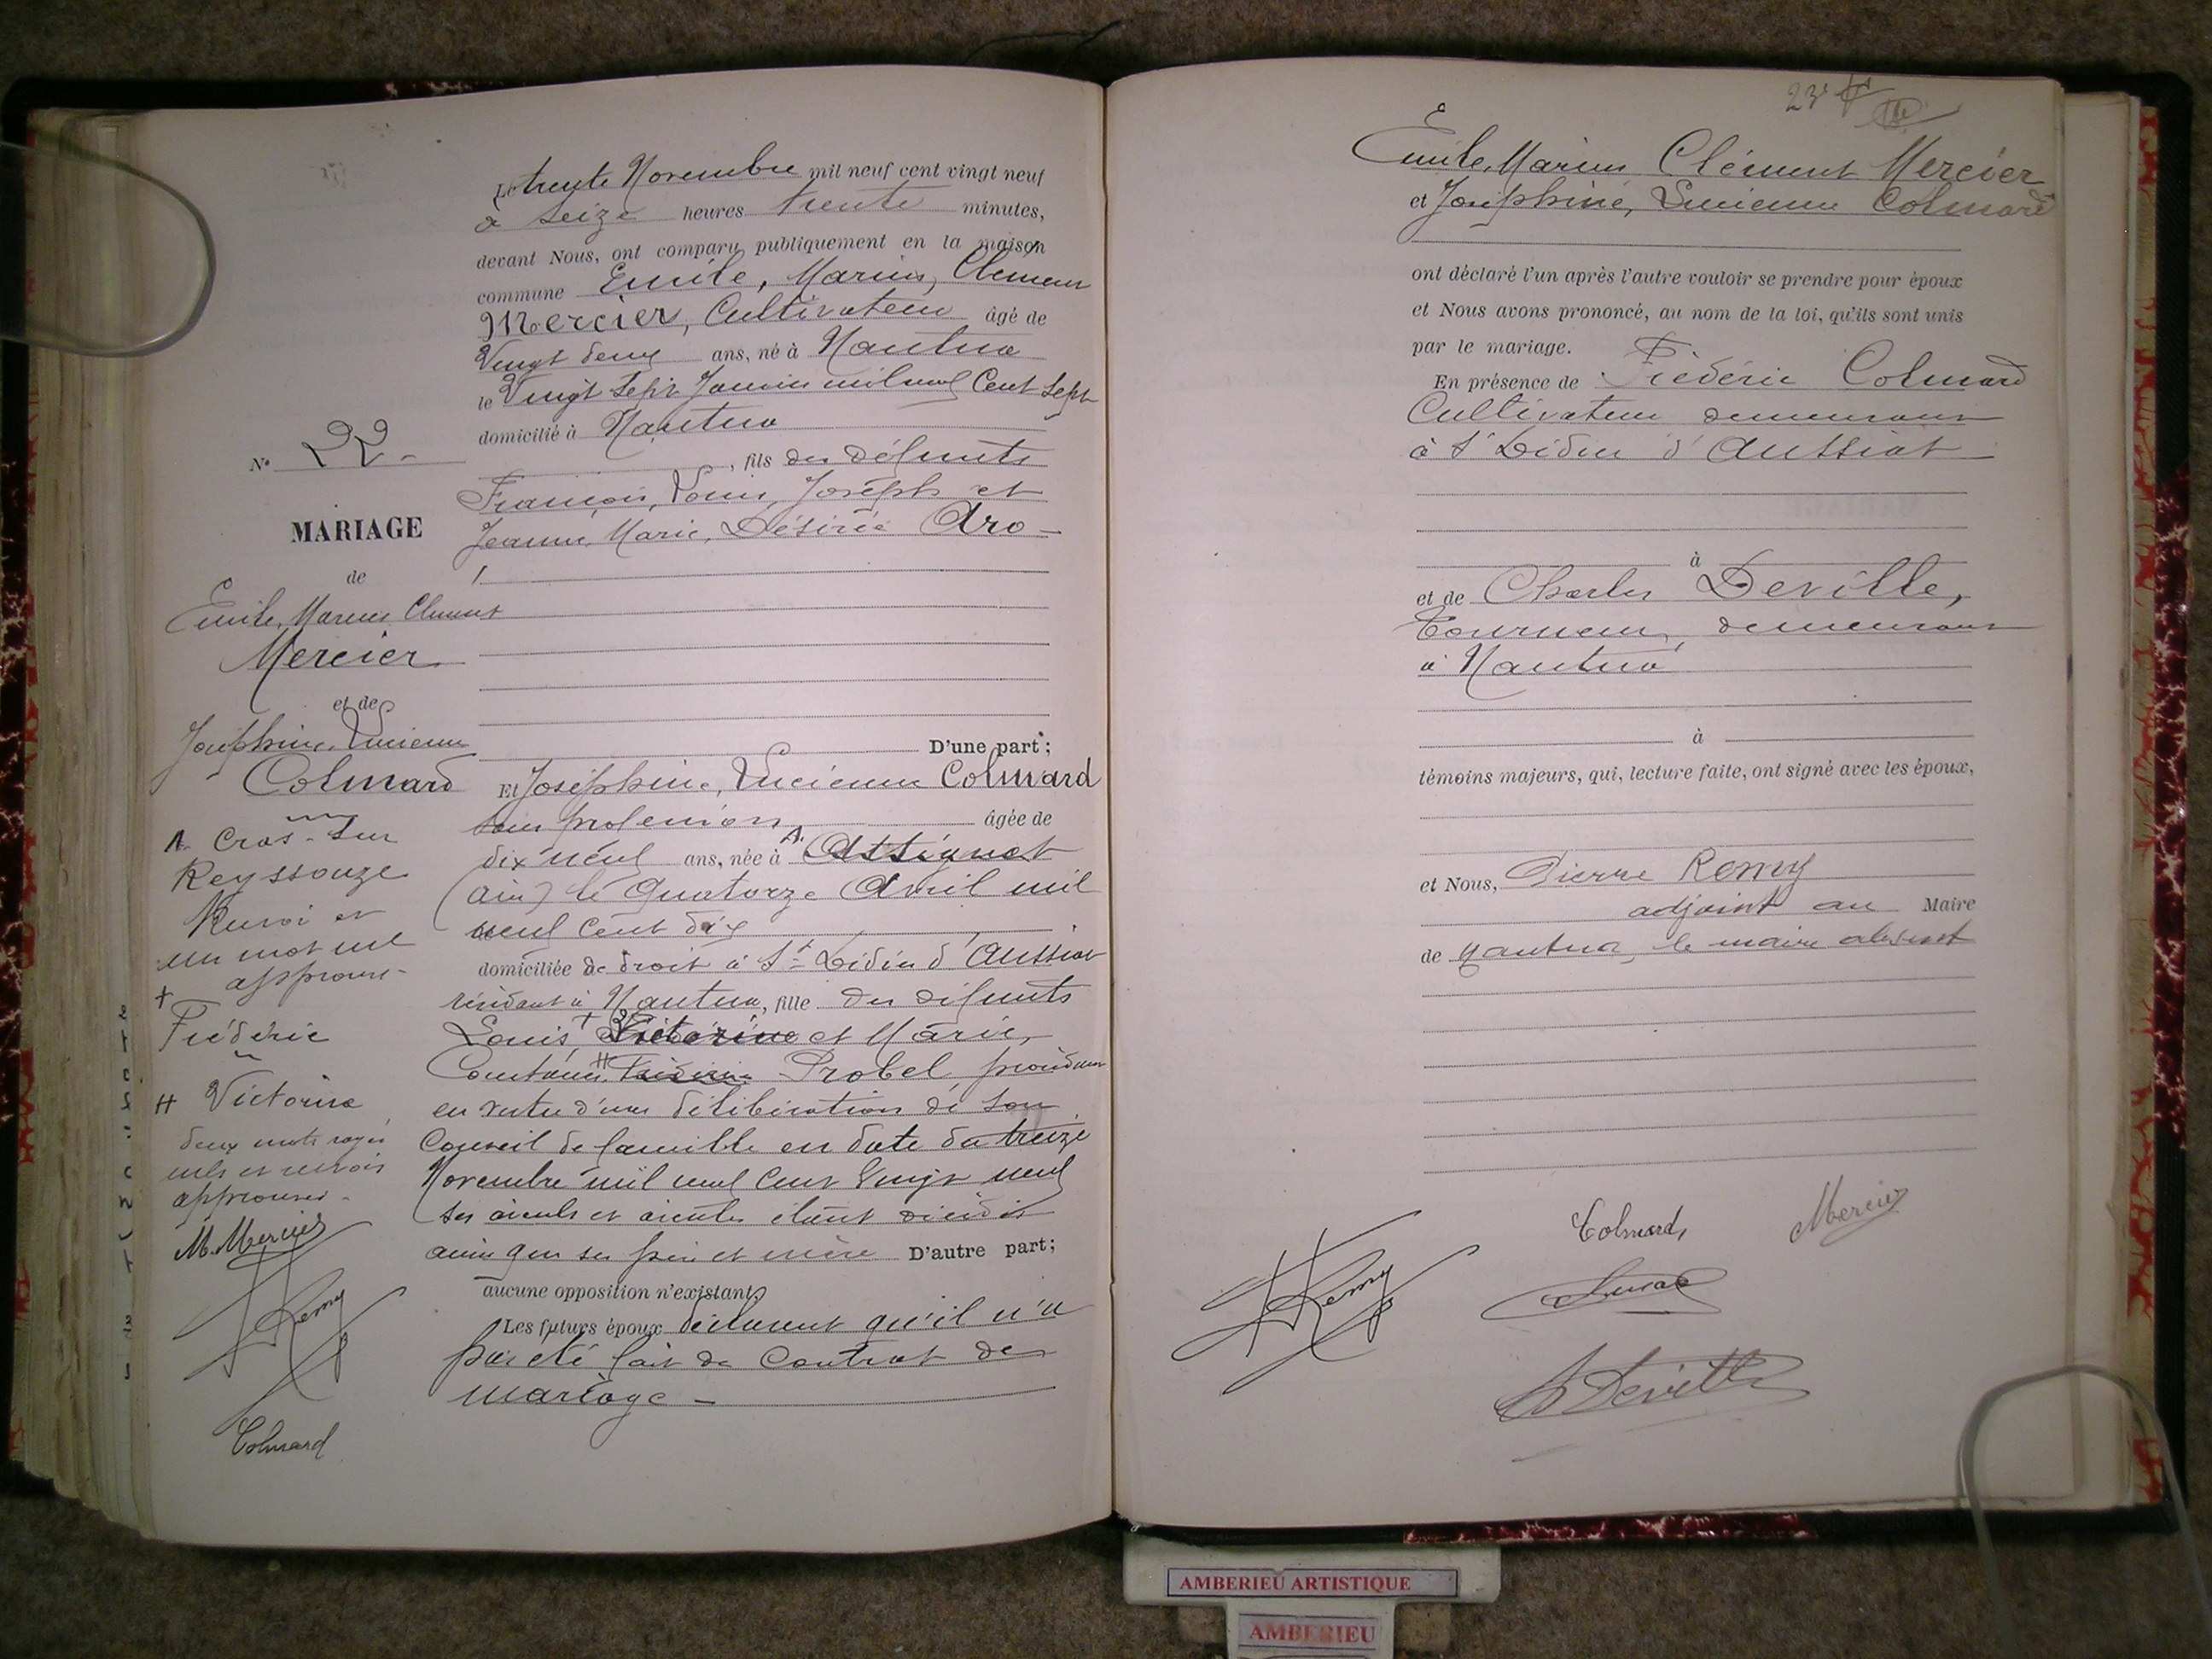 Le trente Novembre mil neuf cent vingt neuf
à seize heures trente minutes,
devant Nous, ont comparu publiquement en la maison
commune Emile, Marius, Clement
Mercier, Cultivateur âgé de
Vingt deux ans, né à Nantua
le Vingt Sept Janvier mil neuf Cent Sept
domicilié à Nantua
, fils des défunts
François, Louis, Joseph et
Jeanne, Marie, Désirée Aro
N° 22 -
MARIAGE
de
Emile, Marius Clement
Mercier
et de
Josephine, Lucienne
Colmard
A. Cras-sur
Reyssouze
Renvoi et
un mot nul
approuvé -
+
Frédéric
H Victorine
deux mots rayés
nuls et renvois
approuvés -
M. Mercier
Remy
Colmard
D'une part ;
Et Joséphine, Lucienne Colmard
sans profession âgée de
dix neuf ans, née à A. Attignat
(ain) le Quatorze Avril mil
neuf cent dix
domiciliée de droit à St Didier d'Aussiat
résidant à Nantua, fille des défunts
Louis + Victorine et Marie,
Constance, H Frédéric Probel, procédant
en vertu d'une délibération de son
Conseil de famille en date du treize
Novembre mil neuf Cent Vingt neuf
ses aieuls et aieules étant décédés
ainsi que ses père et mère D'autre part ;
aucune opposition n'existant,
Les futurs époux déclarent qu'il n'a
pas été fait de Contrat de
mariage -
23
Emile, Marius Clément Mercier
et Joséphine, Lucienne Colmard
ont déclaré l'un après l'autre vouloir se prendre pour époux
et Nous avons prononcé, au nom de la loi, qu'ils sont unis
par le mariage.
En présence de Frédéric Colmard
Cultivateur demeurant
à St Didier d'Aussiat
à
et de Charles Deville,
Tourneur, demeurant
à Nantua
à
témoins majeurs, qui, lecture faite, ont signé avec les époux,
et Nous, Pierre Remy
adjoint au Maire
de Nantua, le maire absent
Colmard Mercier
Remy
Deville
AMBERIEU ARTISTIQUE
AMBERIEU